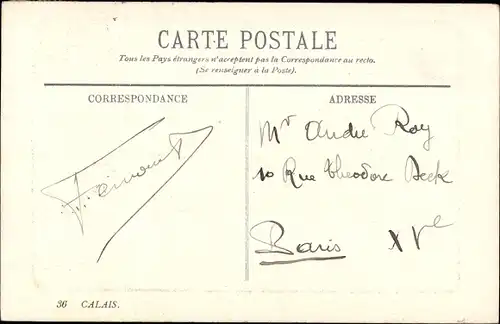 CARTE POSTALE
Tous les Pays étrangers n'acceptent pas la Correspondance au recto.
(Se renseigner à la Poste).
CORRESPONDANCE
ADRESSE
Mr André Roy
10 Rue Theodore Deck
Paris XVe
36 CALAIS.